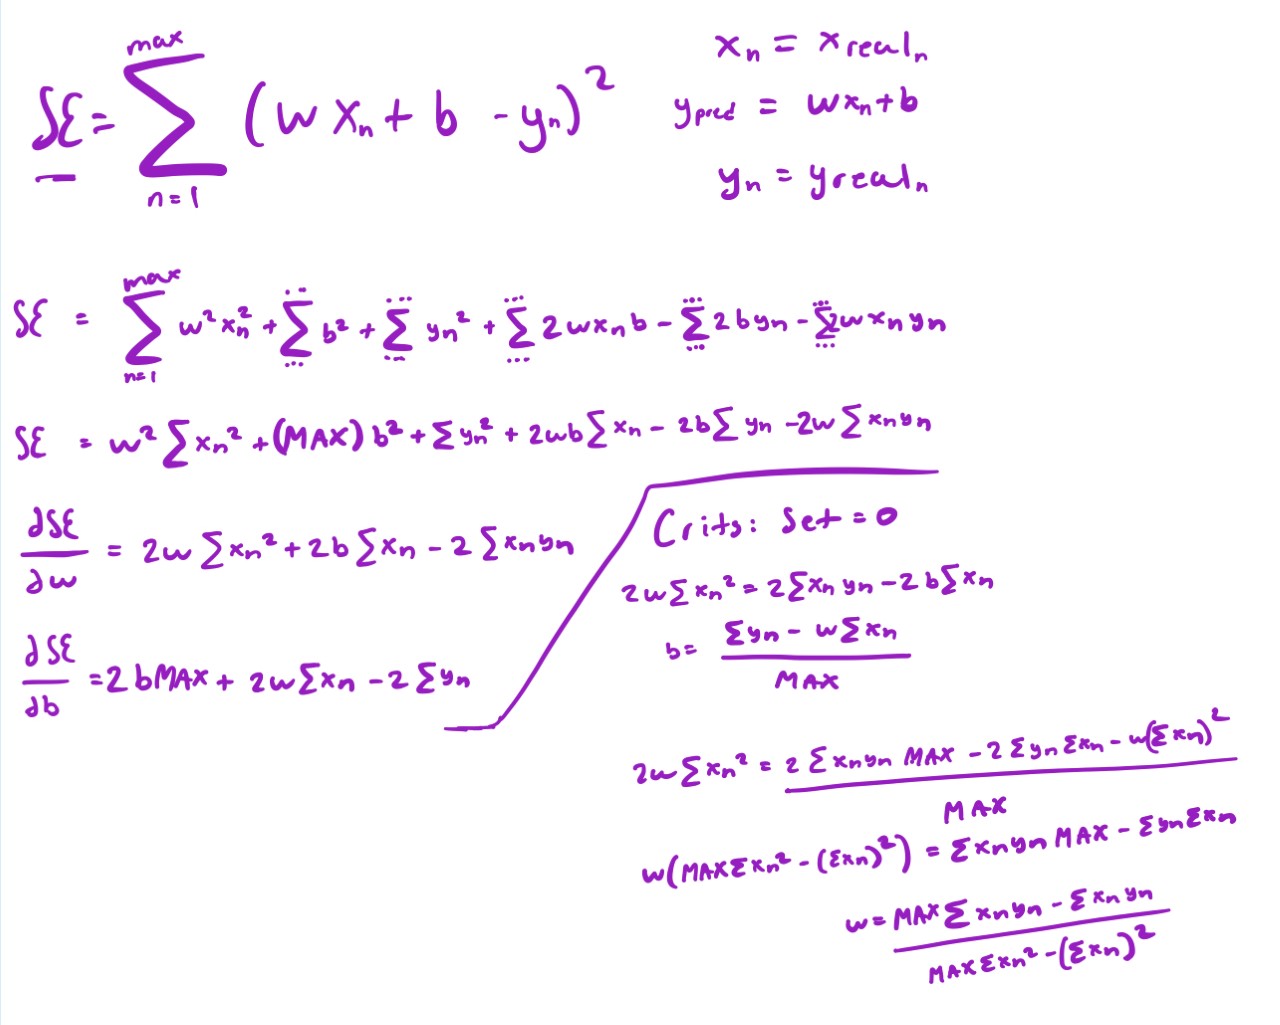 SE = ∑_{n=1}^{max} (w x_n + b - y_n)²
x_n = x real_n
y_pred = w x_n + b
y_n = y real_n
SE = ∑_{n=1}^{max} w² x_n² + ∑_{...}^{...} b² + ∑_{...}^{...} y_n² + ∑_{....}^{....} 2 w x_n b - ∑_{...}^{...} 2 b y_n - ∑_{...}^{...} 2 w x_n y_n
SE = w² ∑ x_n² + (MAX) b² + ∑ y_n² + 2wb ∑ x_n - 2b ∑ y_n - 2w ∑ x_n y_n
∂SE/∂w = 2w ∑ x_n² + 2b ∑ x_n - 2 ∑ x_n y_n
∂SE/∂b = 2b MAX + 2w ∑ x_n - 2 ∑ y_n
Crits: Set = 0
2w ∑ x_n² = 2 ∑ x_n y_n - 2b ∑ x_n
b = (∑ y_n - w ∑ x_n) / MAX
2w ∑ x_n² = (2 ∑ x_n y_n MAX - 2 ∑ y_n ∑ x_n - w(∑ x_n)²) / MAX
w(MAX ∑ x_n² - (∑ x_n)²) = ∑ x_n y_n MAX - ∑ y_n ∑ x_n
w = (MAX ∑ x_n y_n - ∑ x_n y_n) / (MAX ∑ x_n² - (∑ x_n)²)